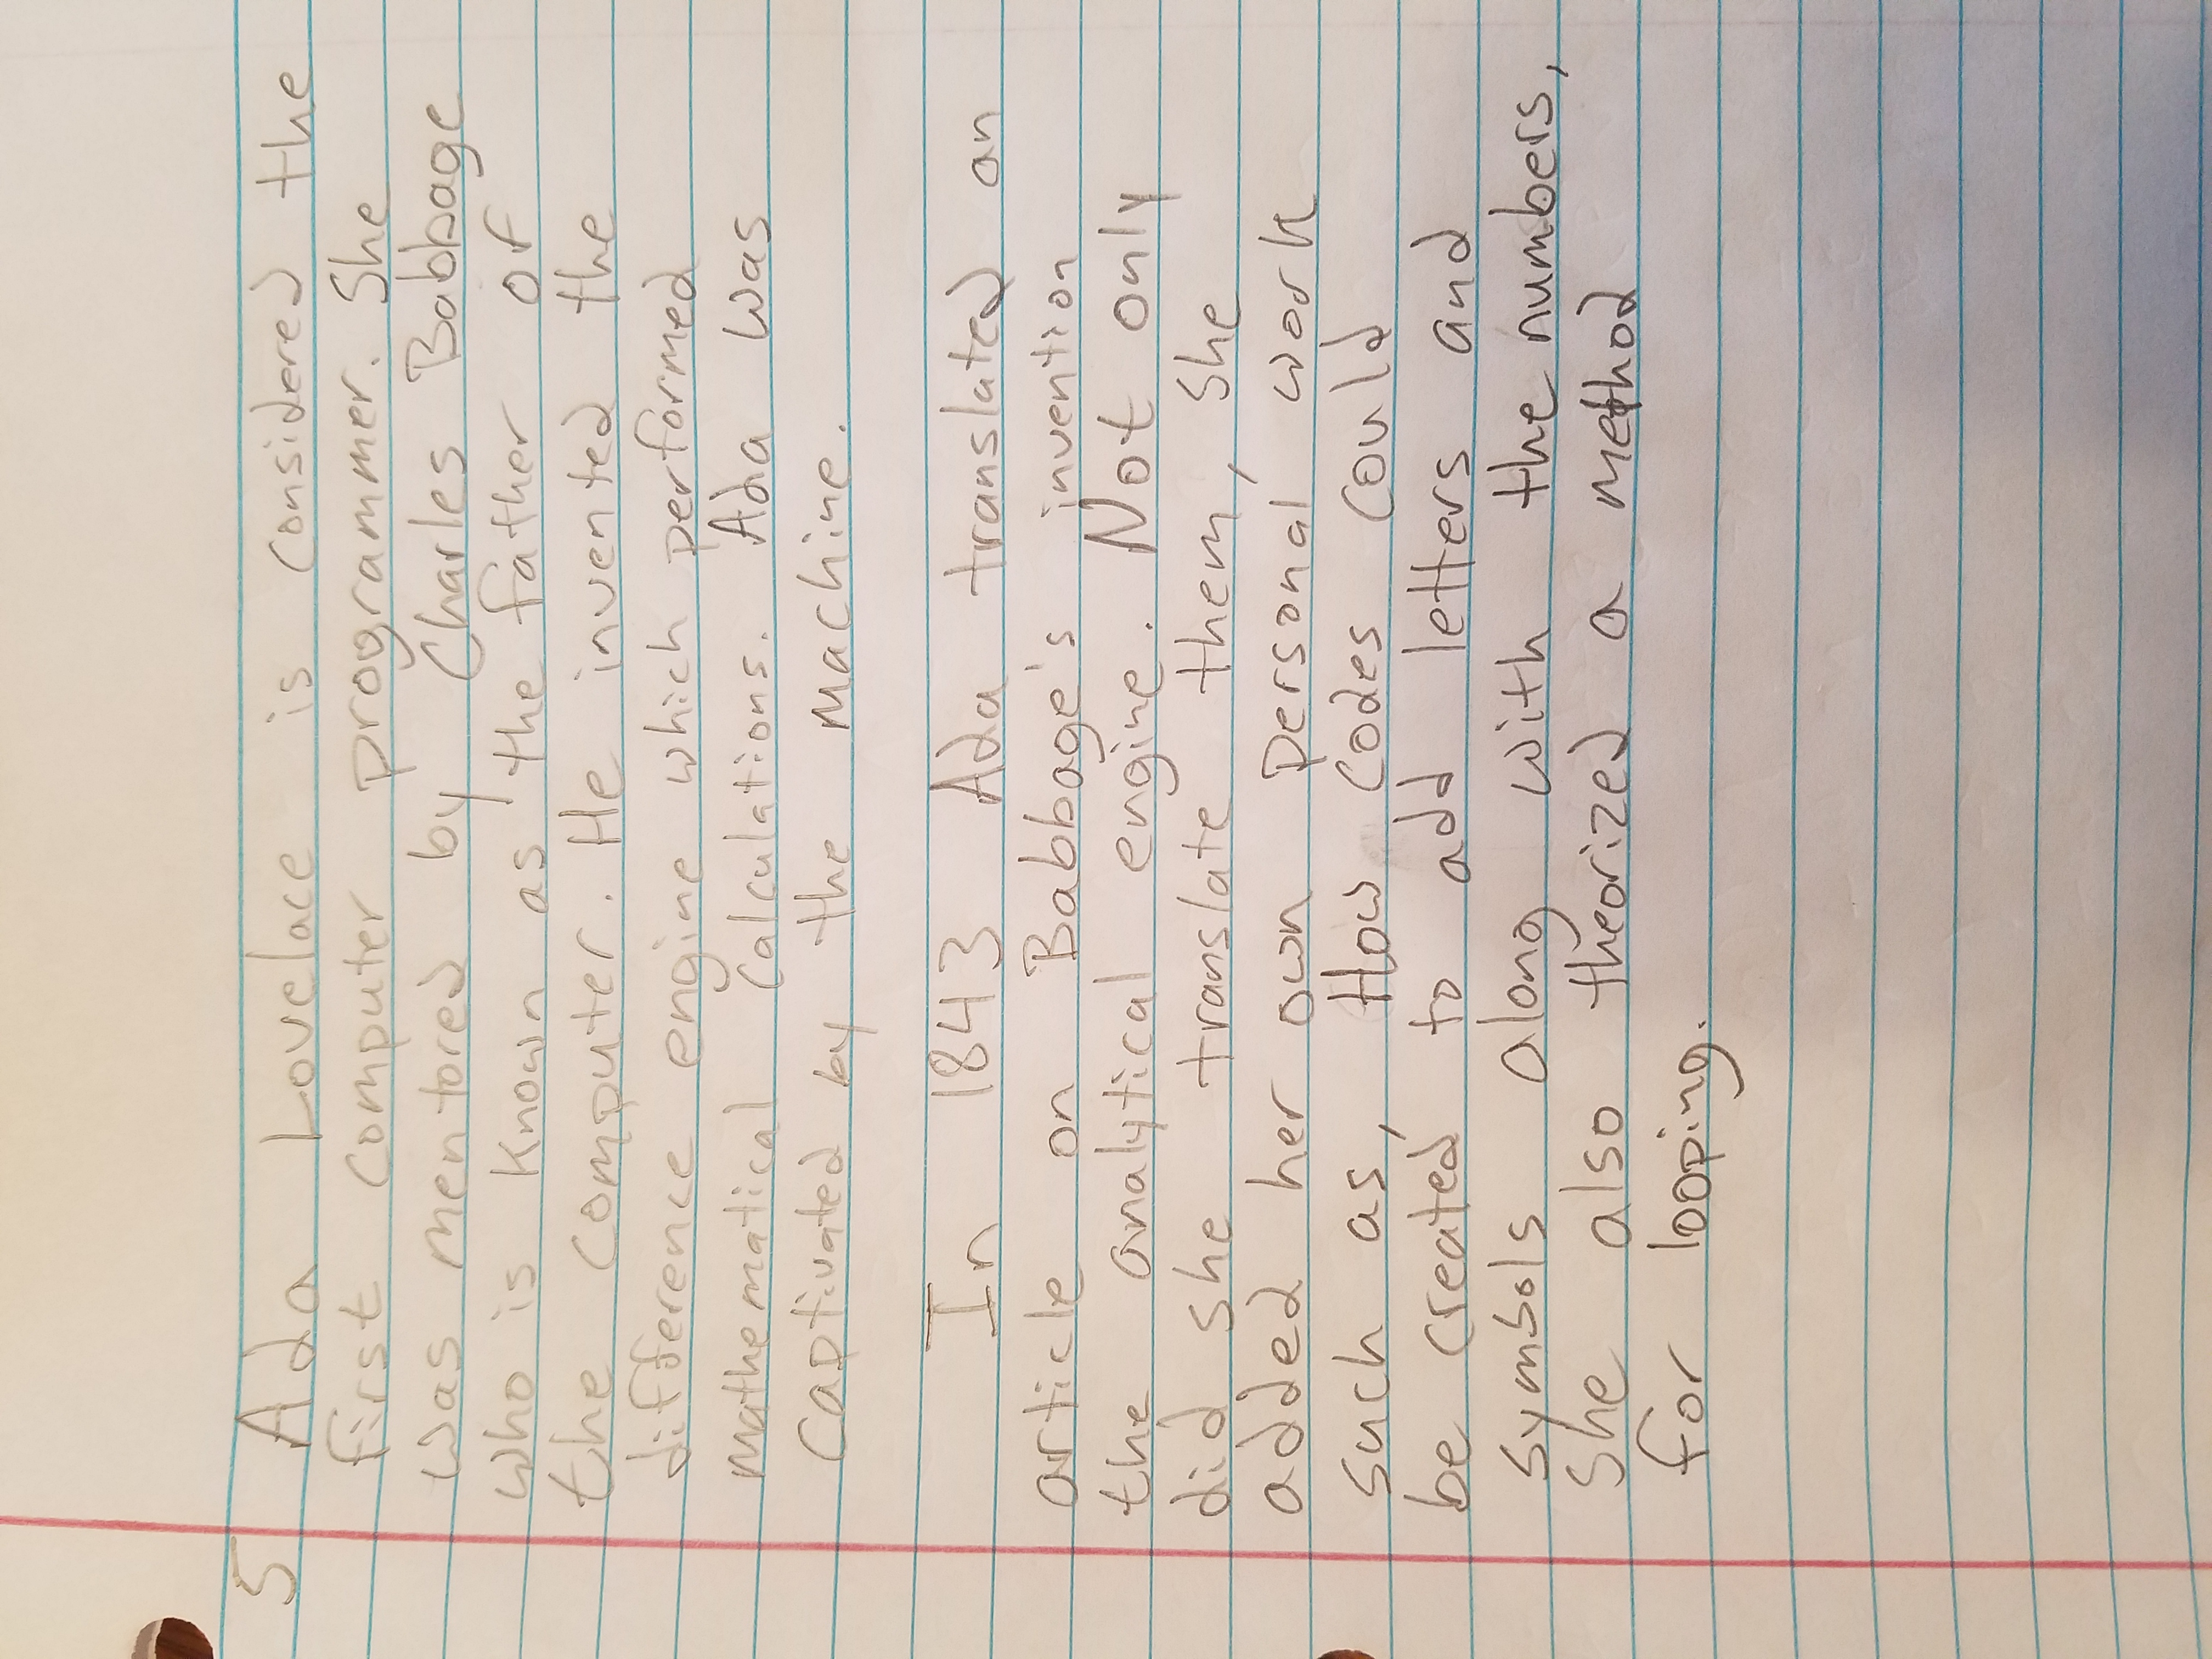 5 Ada Lovelace is considered the
first computer programmer. She
was mentored by Charles Babbage
who is known as the father of
the computer. He invented the
difference engine which performed
mathematical calculations. Ada was
captivated by the machine.
In 1843 Ada translated an
article on Babbage's invention
the analytical engine. Not only
did she translate them, she
added her own personal work
such as, How codes could
be created to add letters and
symbols along with the numbers,
she also theorized a method
for looping.